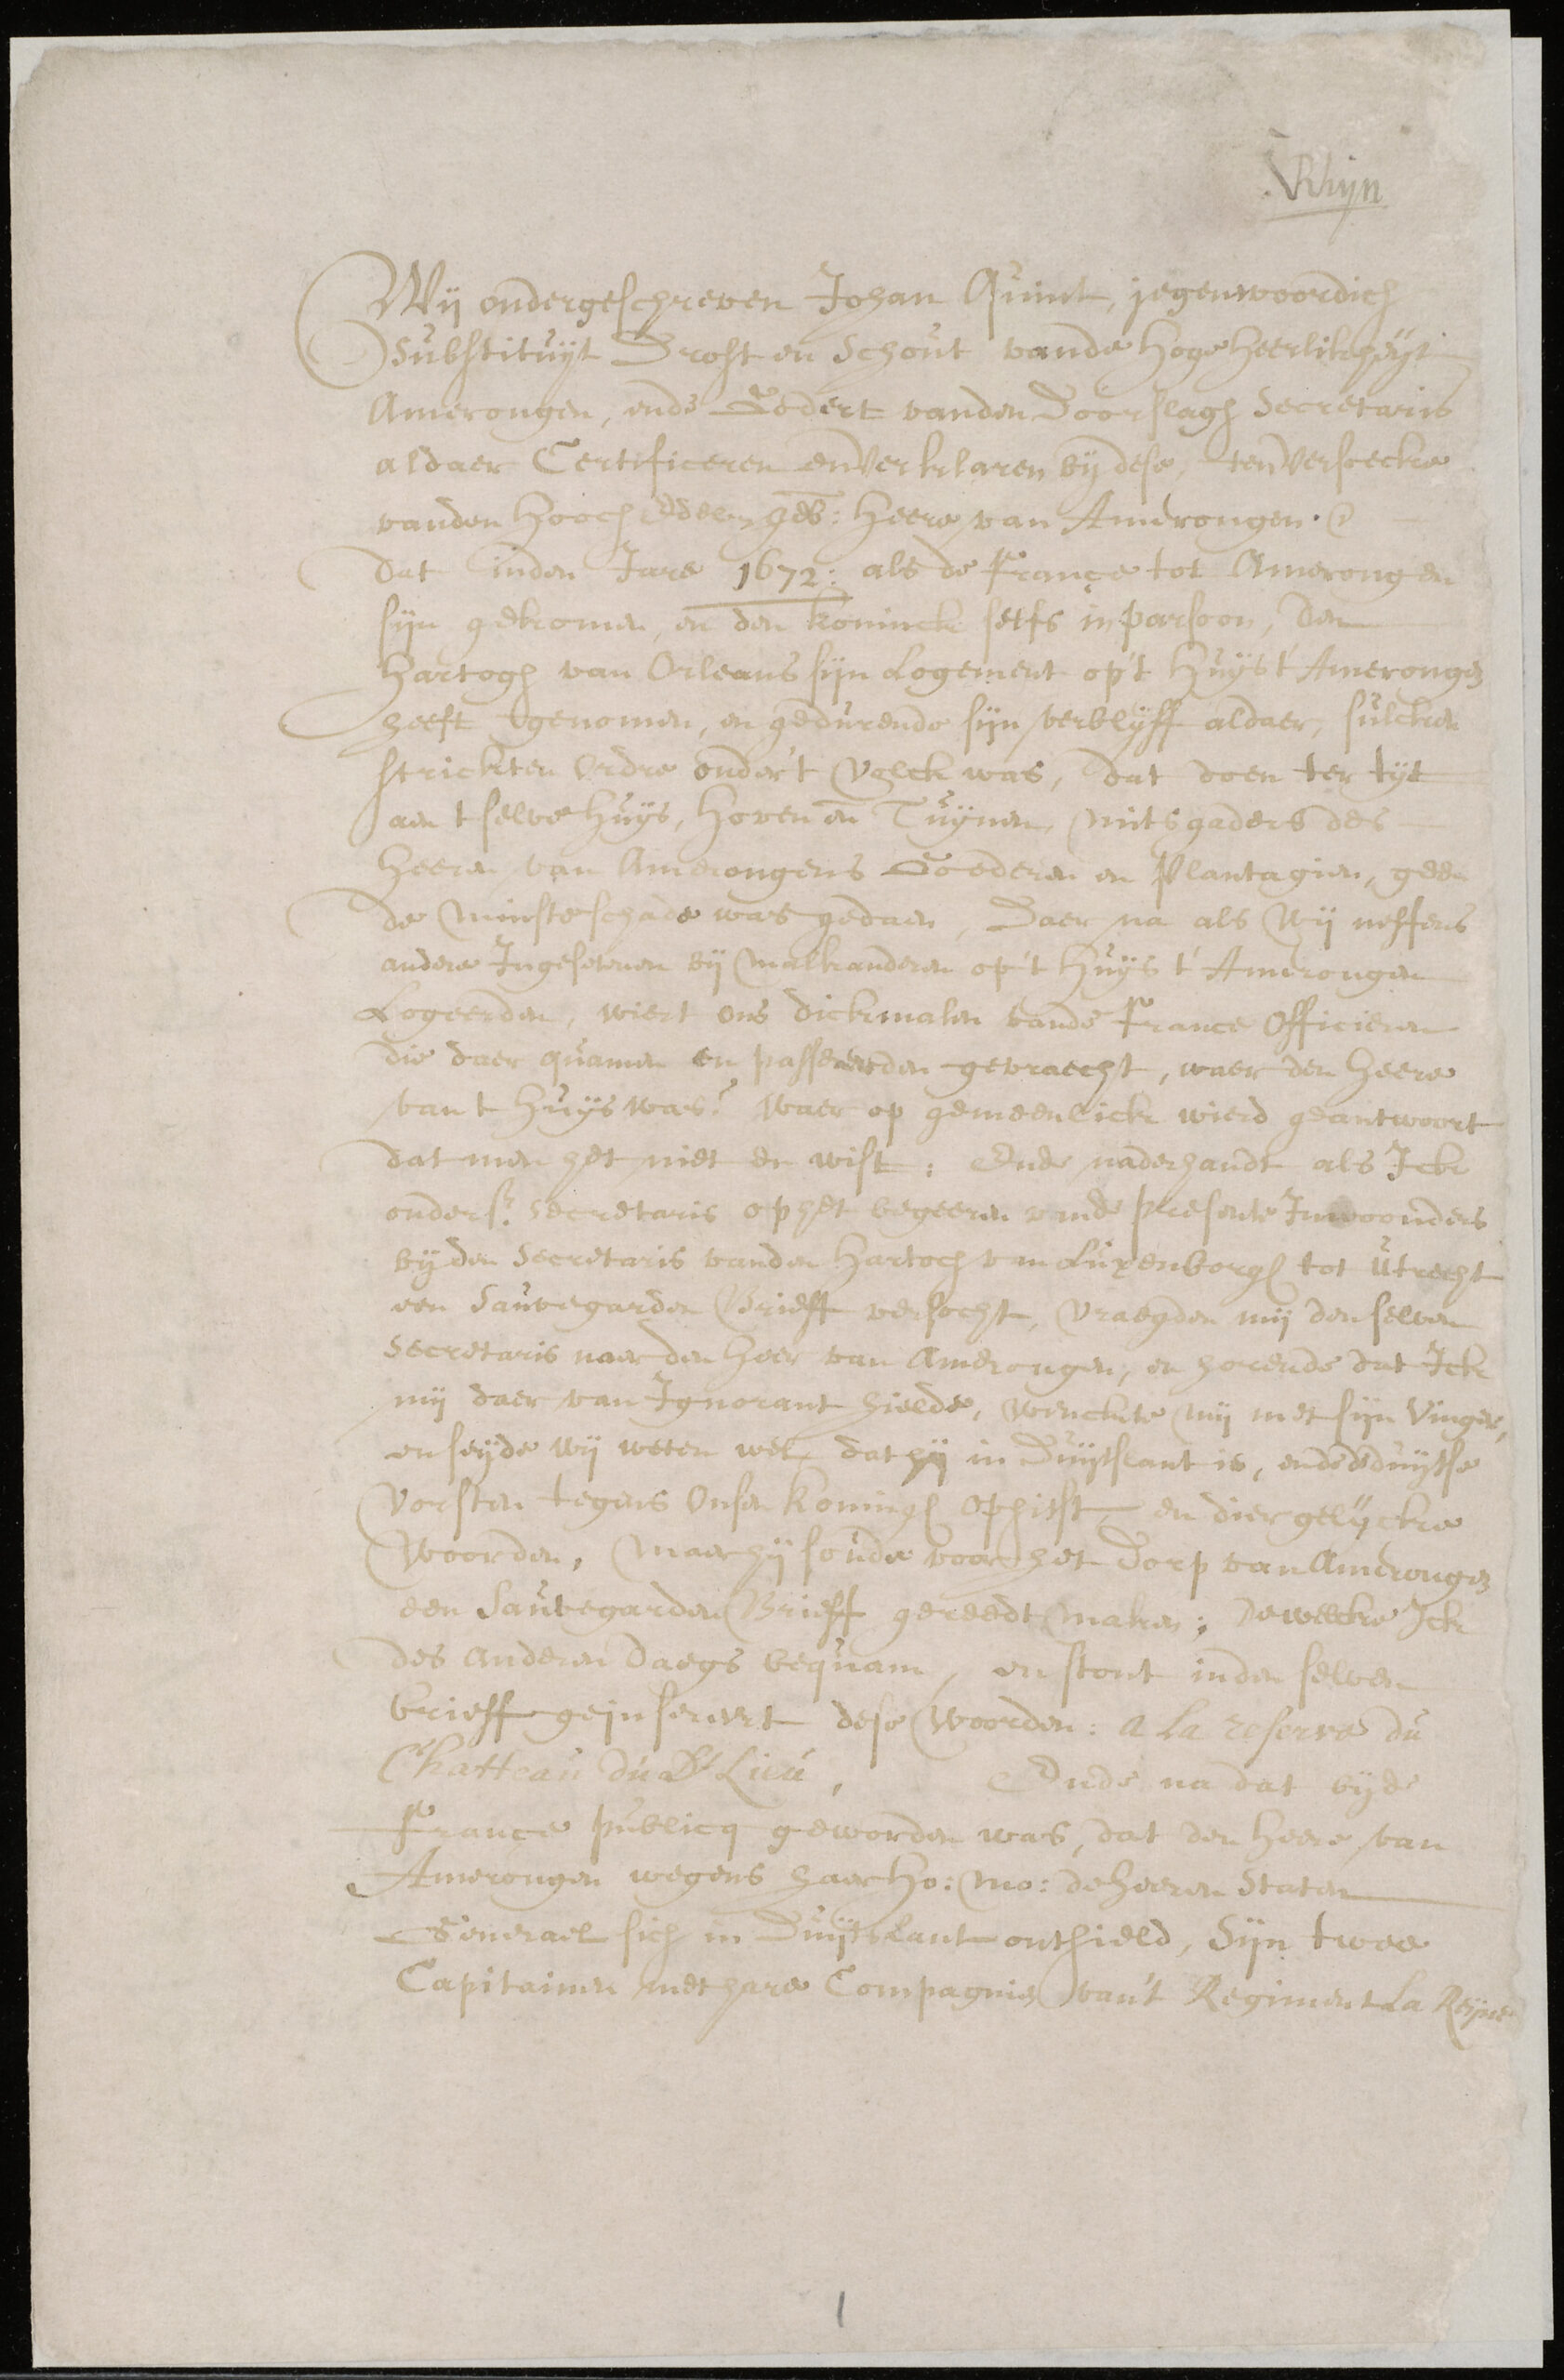 Rhijn
Wij ondergeschreven Johan Quint, jegenwoordich
Substituijt Drost en Schout vande Hoge Heerlikheijt
Amerongen, ende Godert vanden Doorslagh Secretaris
aldaer Certificeren en Verklaren bij dese, ten Versoecke
vanden Hooch Edelen geb: Heere van Amerongen.
dat inden Jare 1672: als de França tot Amerongen
sijn gekomen, en den Koninck selfs in parsoon, den
Hartogh van Orleans sijn Logement op't Huijs t' Amerongen
heeft genomen, en gedurende sijn verblijff aldaer, sulcken
strickten Ordre onder't Volck was, dat doen ter tijt
aen t selve Huijs, Hoven en Tuijnen, mitsgaders des
Heeren van Amerongens Goederen en Plantagien, geen
de minste schade was gedaen, Daer na als Wij neffens
andere Ingesetenen bij malkanderen op't Huijs t' Amerongen
Logeerden, wiert ons dickmalen vande France Officieren
die daer quamen en passeerden gevraecht, waer den Heere
van t Huijs was? Waer op gemeenlick wierd geantwoort
dat men het niet en wist: Ende naderhandt als Ick
onders: Secretaris op het begeeren vande presente Inwoonders
bij den Secretaris vanden Hartoch van Luxenborgh tot Utrecht
een Sauvegarden Brieff versocht, vraegden mij den selven
Secretaris naer den Heer van Amerongen, en horende dat Ick
mij daer van Ignorant hielde, wenckte mij met sijn Vinger,
en seijde wij weten wel dat hij in Duijtslant is, ende de duijtse
Vorsten tegens Onsen Koningh ophitst, en diergelijcke
Woorden, maer hij soude voor het Dorp van Amerongen
een Sauvegarden Brieff gereedt maken; dewelcke Ick
des anderen daegs bequam, en stont inden selven
brieff geinsereert dese Woorden: a la reserve du
Chatteau du dt Lieu, Ende na dat bijde
France publicq geworden was, dat den Heere van
Amerongen wegens haer Ho: Mo: de Heeren Staten
Generael sich in Duijtslant onthield, Sijn twee
Capitainen met hare Compagnien van't Regiment La Reijne
1